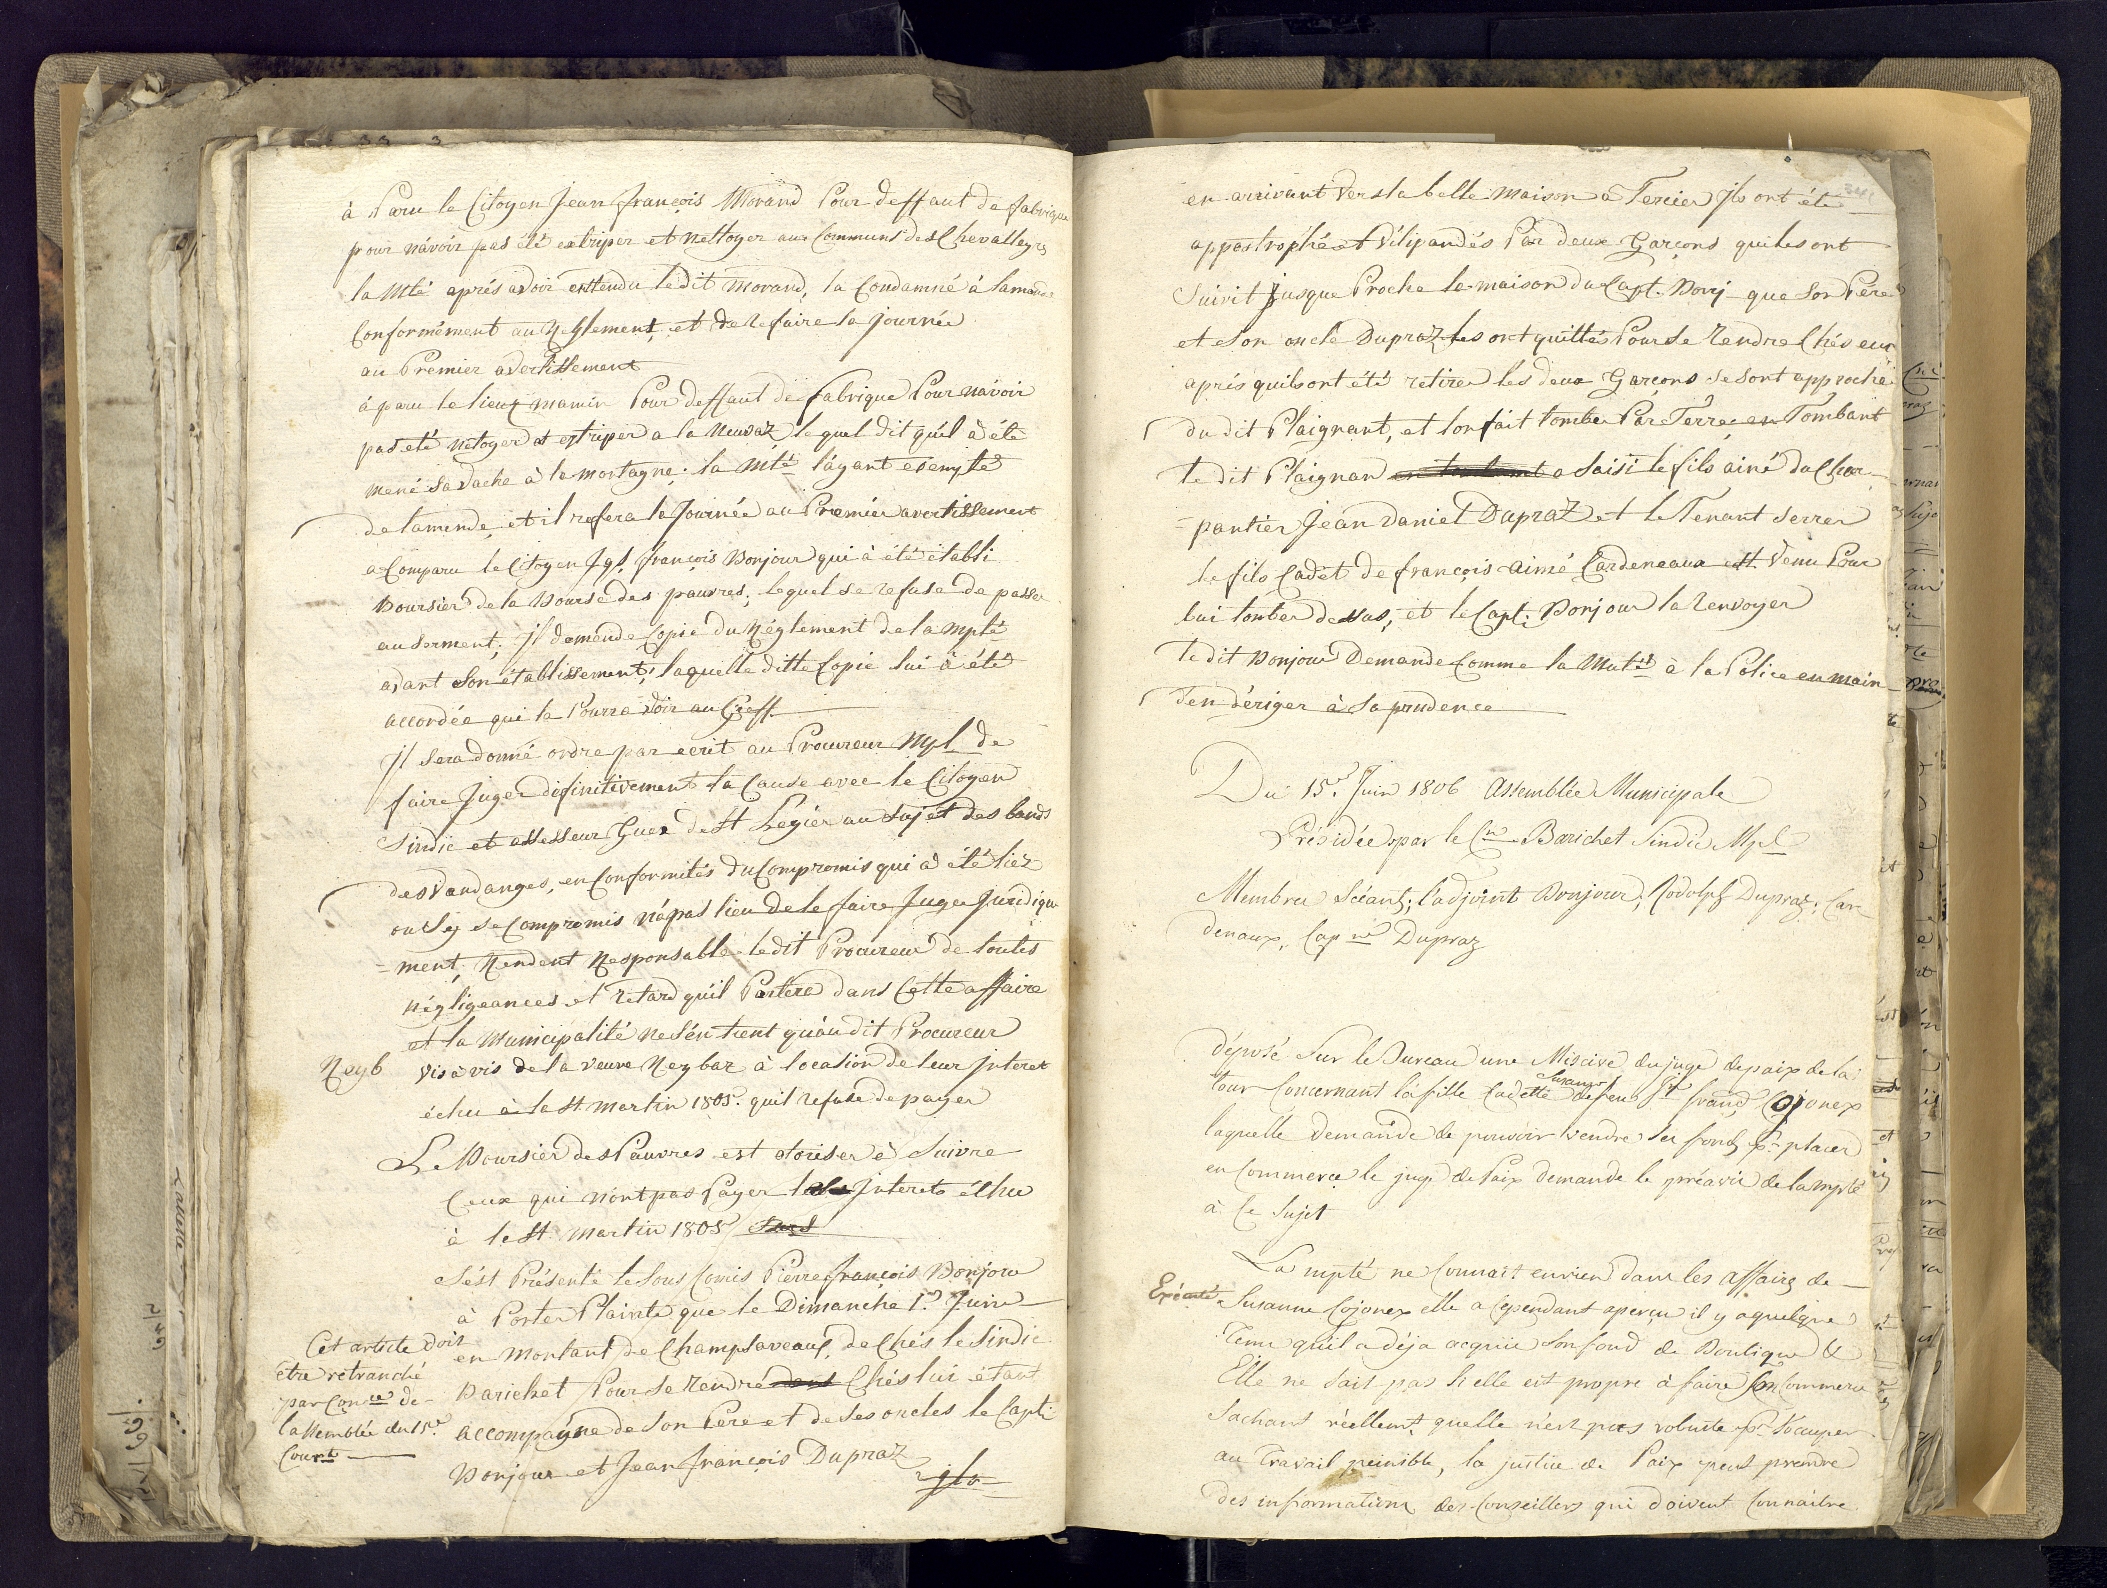 à Paru le Citoyen Jean françois Morand Pour deffaut de fabrique
pour n'avoir pas été extriper et Nettoyer aux Communs des Chevalleyres
la Mté aprés avoir enttendu le dit Morand, la Condamné à lamande
Conformément au Reglement, et de Refaire la Journée
au Premier advertissement
à paru le Sieur Mamin Pour deffaut de fabrique Pour n'avoir
pas été netoyer et extriper a la Neuvaz, lequel dit quil à été
mené sa Vache à la montagne; la Mté l'ayant exempté
de lamende, et il refera la Journée au Premier avertissement
a Comparu le Citoyen françois Bonjour qui à été établi
Boursier de la Bourse des pauvres, lequel se refuse de passer
au Serment, Jl demende Copie du Réglement de la Mpté
avant Son établissement, laquelle ditte Copie lui à été
accordée qui la Pourra Voir au Greff.
Jl sera donné ordre par ecrit au Procureur Mpl de
faire Juger définitivement la Cause avec le Citoyen
Sindic et assesseur Guex de St Légier au Sujet des bancs
des Vandanges, en Conformités du Compromis qui à été liez
ou Sy se Compromis n'apas lieu de le faire Juger Juridique
-ment, Rendent Responsable le dit Procureur de toutes
négligeances et retard quil Portera dans Cette affaire
et la Municipalité ne S'en tient quàu dit Procureur
Neyb
vis à vis de la veuve Neybaz à location de leur Jnteret
échu à la St Martin 1805. quil refuse de payer
Le Boursier des Pauvres est otoriser à Suivre
Ceux qui n'ont pas Payer Jnterets échu
à la St Martin 1805
S'ést Présenté le Sous Comis Pierre françois Bonjour
à Porter Plainte que le Dimanche 1r Juin
en montant de Champsaveaux, de Chés le Sindic
Barichet Pour Se Rendre Chés lui étant
accompagné de Son Pere et de Ses oncles le Capt:
Bonjour et Jean françois Dupraz
jls
Cet article doit
etre retranché
par Con.ce de
lassemblée du 15e
Cour.t
en arrivant Vers la belle Maison a Tercier Jls ont été
appostrophé et Vilipandés Par deux Garçons qui les ont
Suivit Jusque Proche la maison du Capt. Bonj que Son Pere
et Son oncle Dupraz les ont quittés Pour Se Rendre Chés eux
aprés quils ont été retirer les deux Garçons se sont approché
du dit Plaignant, et lon fait tomber Par Terre, en Tombant
le dit Plaignan a Saisi le fils ainé du Char
-pantier Jean Daniel Dupraz et le Tenant Serrer
le fils Cadet de françois Aimé Cardeneaux est Venu Pour
lui tomber dessus, et le Capt: Bonjour la Renvoyer
le dit Bonjour Demande Comme la Mu.té à la Police en main
d'en dériger à Sa prudence
Du 15e Juin 1806 Assemblée Municipale
Présidée par le Cn Barichet Sindic Mpl
Membres Séants; l'adjoint Bonjour, Rodolph Dupraz, Car-
denaux, Cap.ne Dupraz
déposé Sur le Bureau une Miscive du juge de paix de la
tour Concernant la fille Cadette Susanne de feu Jn franç Cojonex
laquelle demande de pouvoir vendre Ses fonds pr placer
en Commerce le juge de Paix demande le préavis de la Mpté
à Ce Sujet
La mpté ne Connait en rien dans les affaires de
Exécuté
Susanne Cojonex elle a Cependant aperçu il y a quelque
Tems quil a déja acquis Son fond de Boutique &
Elle ne Sait pas Si elle est propre à faire Son Commerce
Sachant réellemt. quelle n'est pas robuste pr S'ocuper
au Travail peinible, la justice de Paix peut prendre
des information des Conseillers qui doivent Connaitre